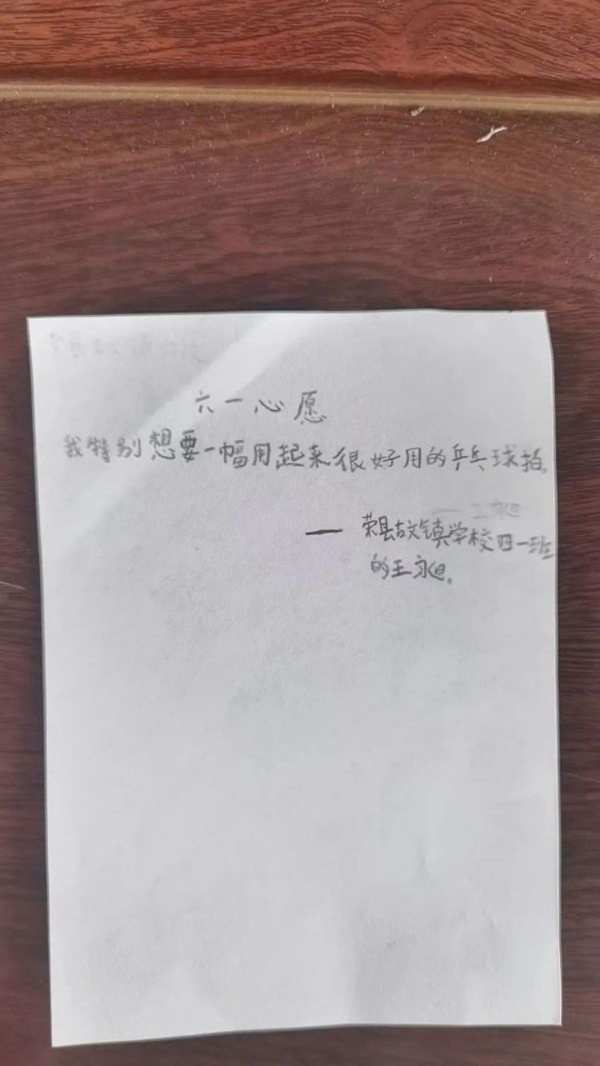 六一心愿
我特别想要一幅用起来很好用的乒乓球拍。
— 荣县古文镇学校四一班
的王